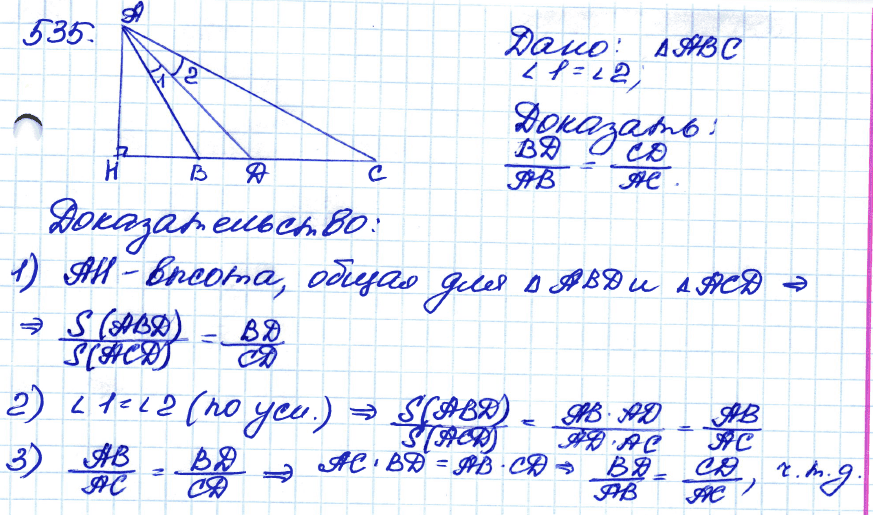 535.
A
1 2
H B D C
Дано: △ABC
∠1=∠2;
Доказать:
BD/AB = CD/AC.
Доказательство:
1) AH – высота, общая для △ABD и △ACD ⇒
⇒ S(ABD)/S(ACD) = BD/CD
2) ∠1=∠2 (по усл.) ⇒ S(ABD)/S(ACD) = AB·AD/AD·AC = AB/AC
3) AB/AC = BD/CD ⇒ AC·BD = AB·CD ⇒ BD/AB = CD/AC, ч.т.д.